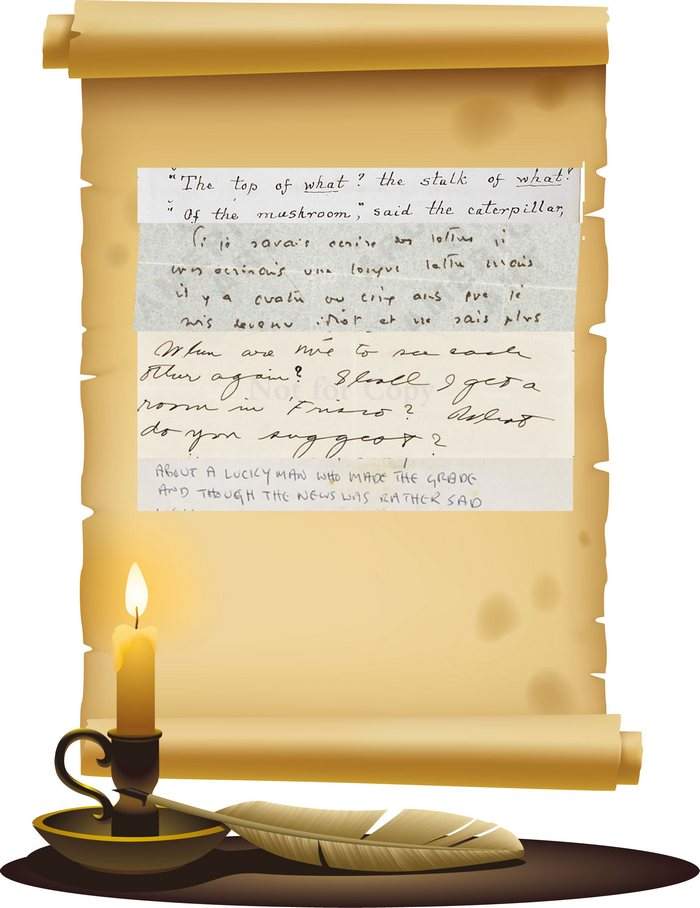 "The top of what? the stalk of what?"
"Of the mushroom," said the caterpillar,
Si je savais écrire des lettres je
vous écrirais une longue lettre mais
il y a quatre ou cinq ans que je
suis devenu idiot et ne sais plus
When are we to see each
other again? Shall I get a
room in 'Frisco? What
do you suggest?
Not for Copy
ABOUT A LUCKY MAN WHO MADE THE GRADE
AND THOUGH THE NEWS WAS RATHER SAD